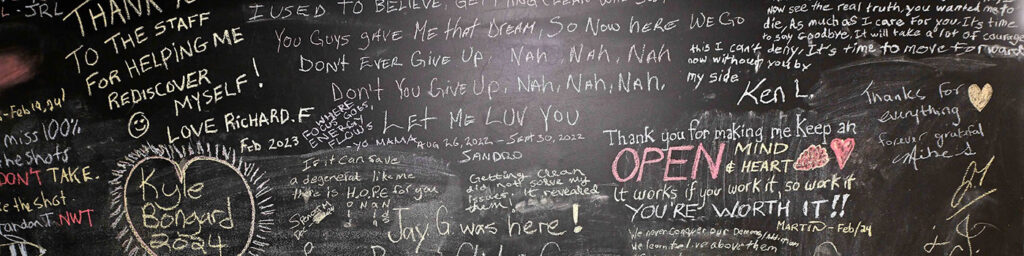 L-JRL
THANK
TO THE STAFF
FOR HELPING ME
REDISCOVER
MYSELF!
LOVE RICHARD.F
Feb 2023
-Feb 14, 24!
miss 100%
the shots
DON'T TAKE.
the shot
NWT
Kyle
Bongard
2024
I USED TO BELIEVE, GETTING CLEAN
YOU GUYS GAVE ME that DREAM, SO NOW here WE GO
DON'T EVER GIVE UP, NAH, NAH, NAH
DON'T YOU GIVE UP, NAH, NAH, NAH.
LET ME LUV YOU
-YO MAMA AUG 26, 2022 - Sept 30, 2022
SANDRO
WHERE
ENERGY
FLOWS
Is it can save
a degenerat like me
there is H.O.P.E for you
Getting Clean
did not solve my
issues it revealed
them!
Jay G was here!
now see the real truth, you wanted me to
die. As much as I care for you. It's time
to say goodbye. It will take a lot of courage
this I can't deny. It's time to move forward
now without you by
my side
Ken L.
Thanks for
everything
forever grateful
Thank you for making me keep an
OPEN MIND
& HEART
It works if you work it, so work it
YOU'RE WORTH IT!!
MARTIN - Feb/24
We never conquer our Demons/Addiction
we learn to live above them